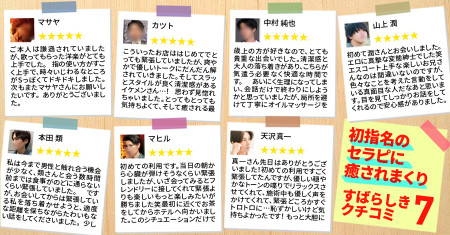 マサヤ
★★★★★
ご本人は謙遜されていました
が、歌ってもらった洋楽がとても
上手でした。 指の使い方がすご
く上手で、時々いじわるなところ
がSっぽくてドキドキしました。
次もまたマサヤさんにお願いし
たいです。ありがとうございまし
た。
カツト
★★★★★
こういったお店ははじめてでと
っても緊張していましたが、爽や
かで優しいトークにだんだん解
されていきました。そしてスラっ
とスタイルが良く清潔感がある
イケメンさん…! 思わず見惚れ
ちゃいました。とってもとっても
気持ちよくて、そして癒される最
中村 純也
★★★★★
歳上の方が好きなので、とても
貴重な出会いでした。清潔感と
大人の落ち着きがあり、こちらが
気遣う必要なく快適な時間で
す。 あいにく生理になってしま
い、会話だけで終わりにしよう
かと思っていましたが、局所を避
けて丁寧にオイルマッサージを
山上 潤
★★★★★
初めて潤さんとお会いしました。
エロに真摯な変態紳士でした笑
エスコート上手な楽しいお兄さ
んなのは間違いないのですが、
色々なことを考えた言動をして
いる真面目な人だなあと思いま
す。目を見てしっかりお話をして
くれるので安心感がありました。
本田 類
★★★★★
私は今まで男性と触れ合う機会
が少なく、類さんと会う数時間
前までは食事がのどに通らない
くらい緊張していました ですが、
お会いしてからは緊張してい
る私を落ち着かせようと、適度
な距離を保ちながらたわいもな
い話をしてくださいました。少し
マヒル
★★★★★
初めての利用です。当日の朝か
ら心臓が弾けそうなくらい緊張
しましたが、いざ会ってみるとフ
レンドリーに接してくれて緊張よ
りも楽しいもっと楽しみたいが
勝ちました笑最初に近くでお茶
をしてからホテルへ向かいまし
た。このシチュエーションだけで
天沢 真一
★★★★★
真一さん先日はありがとうござ
いました!初めての利用ですごく
緊張してたんですが、優しい穏や
かなトーンの喋りでリラックスさ
せてくれて、施術中も優しく声を
かけてくれて、緊張どころかすぐ
トロトロに…恥ずかしいけど気
持ちよかったです! もっと大胆に
初指名の
セラピに
癒されまくり
すばらしき
クチコミ
7